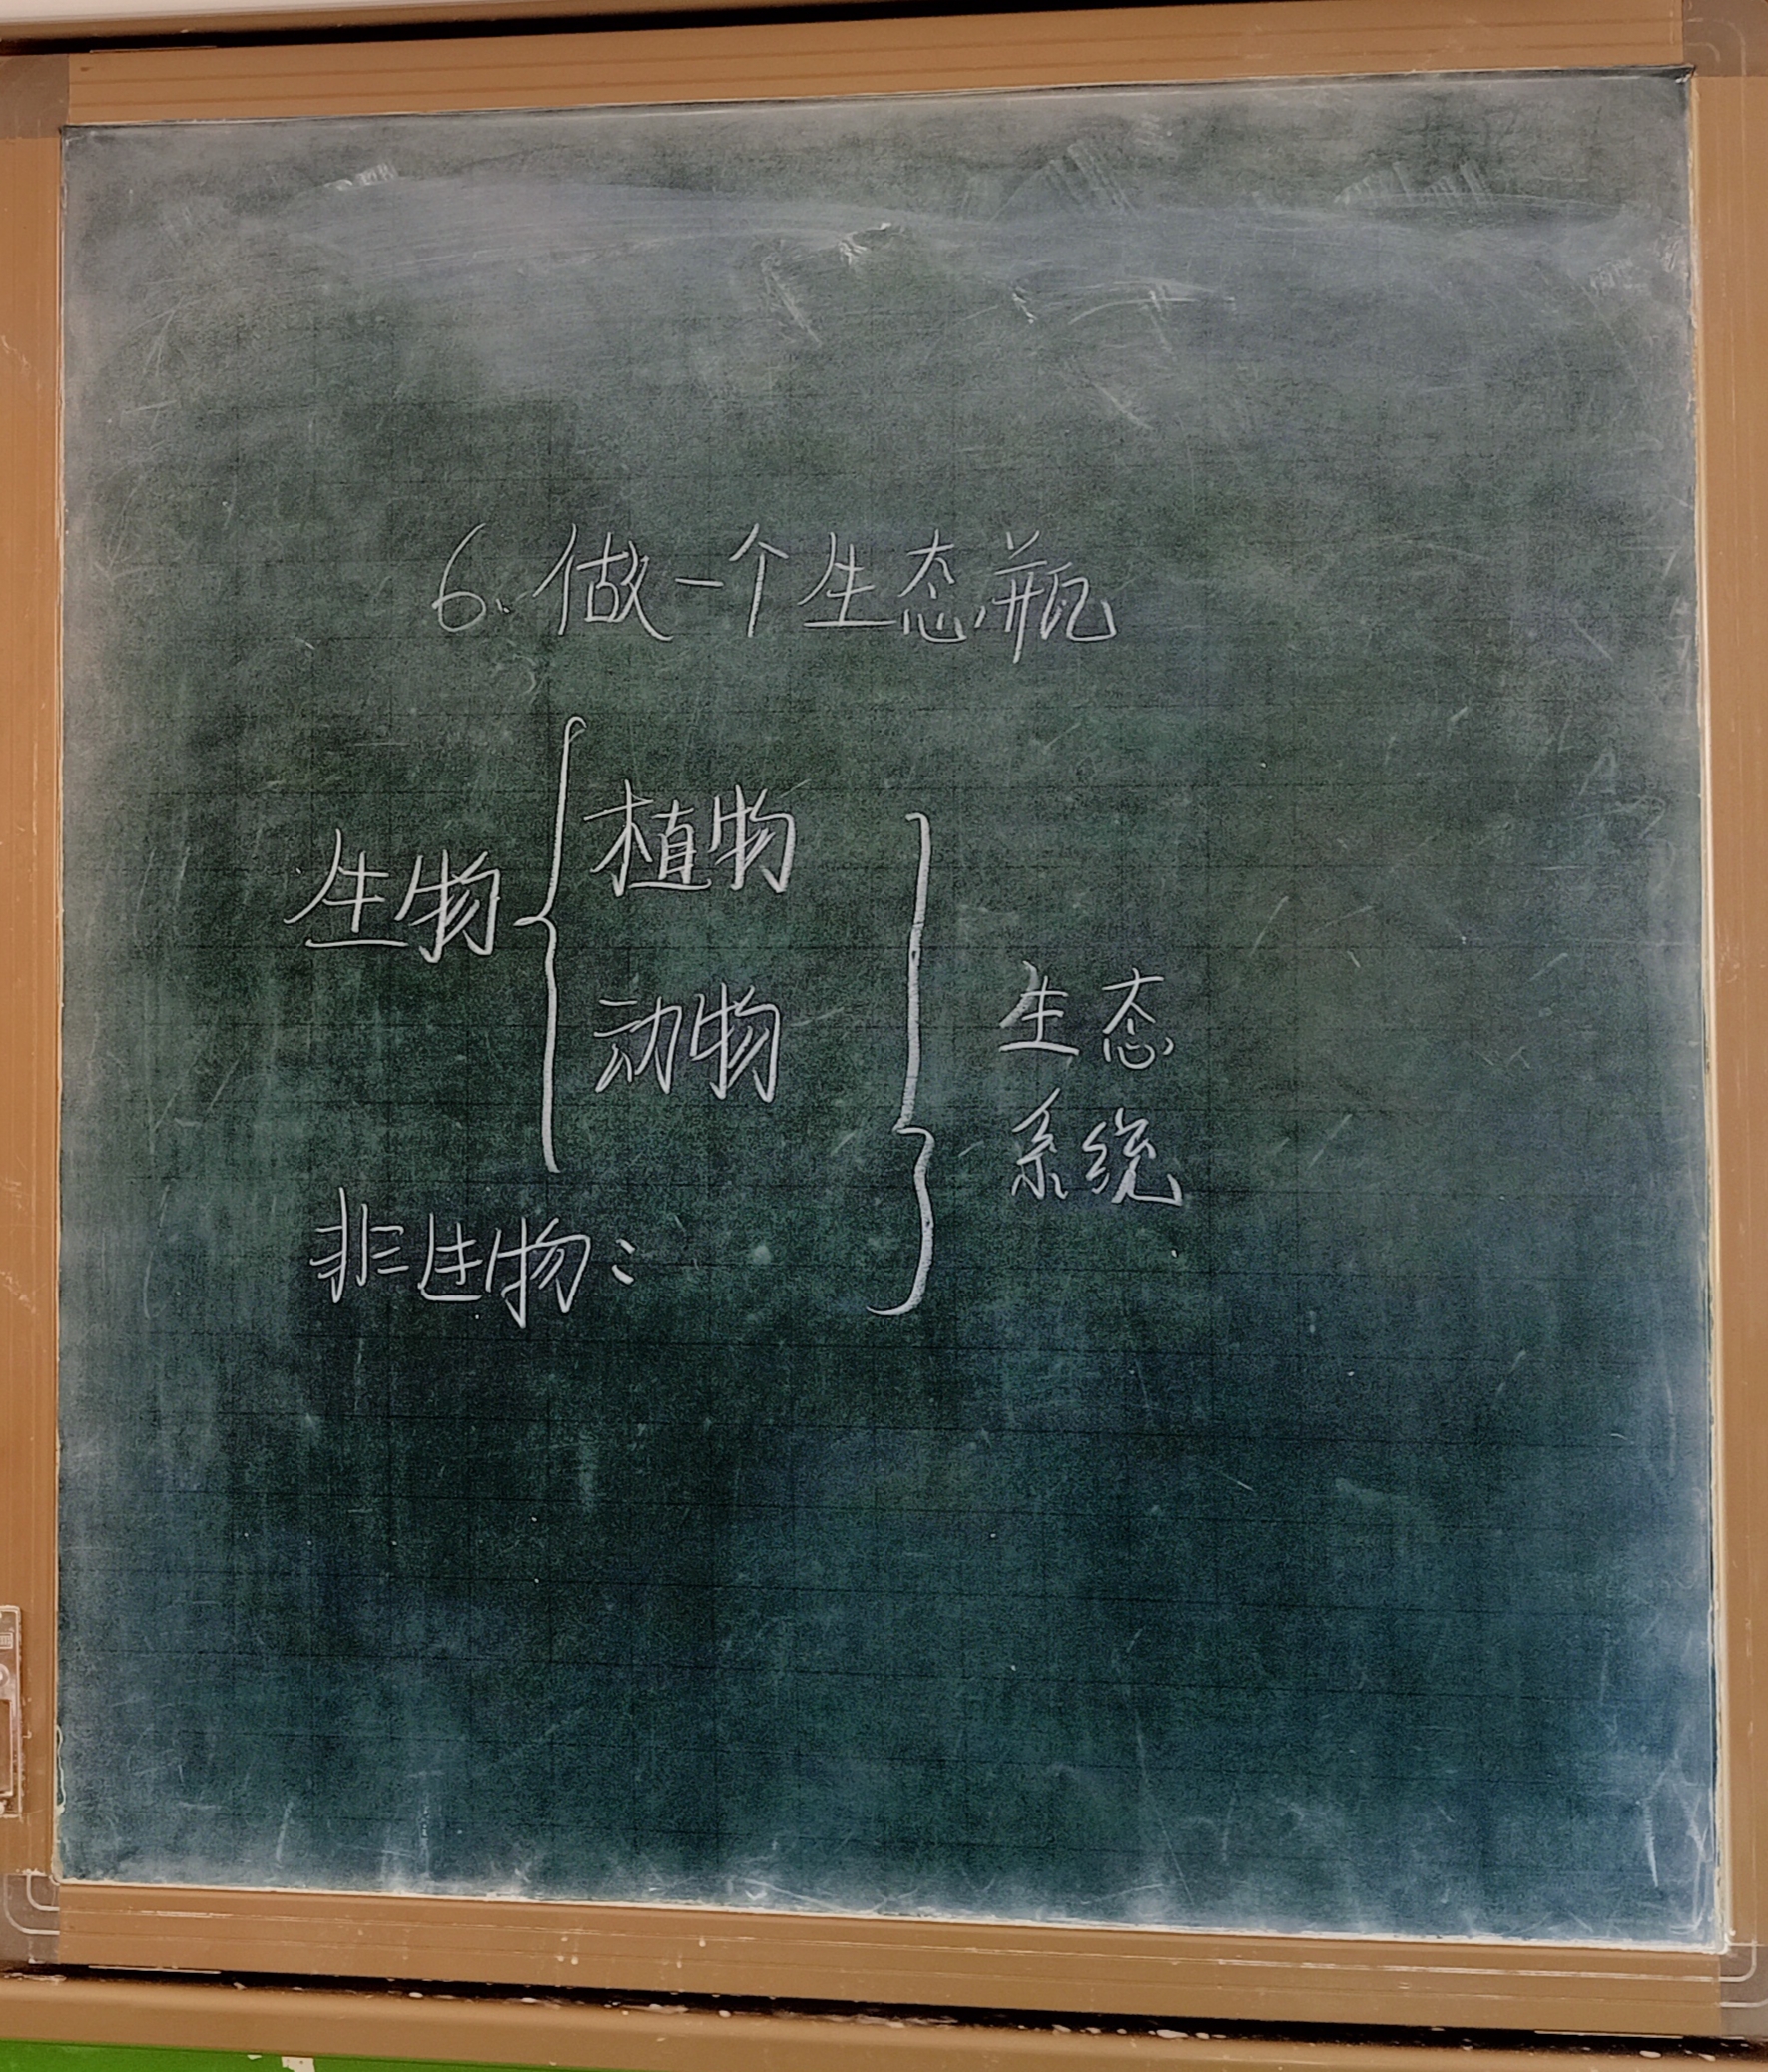 6.做一个生态瓶
生物
植物
动物
非生物:
生态
系统